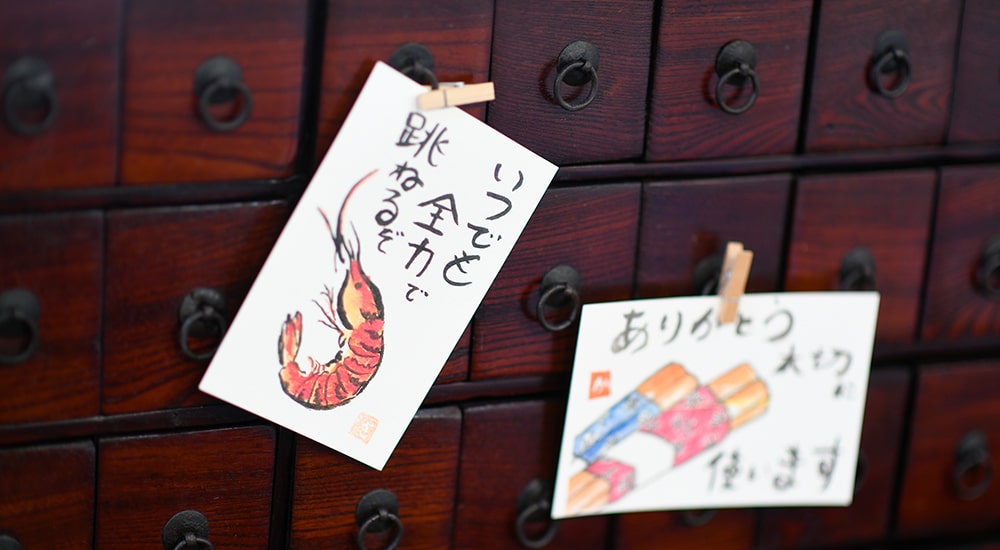 いつでも
全力で
跳ねるぞ
ありがとう
大切に
使います